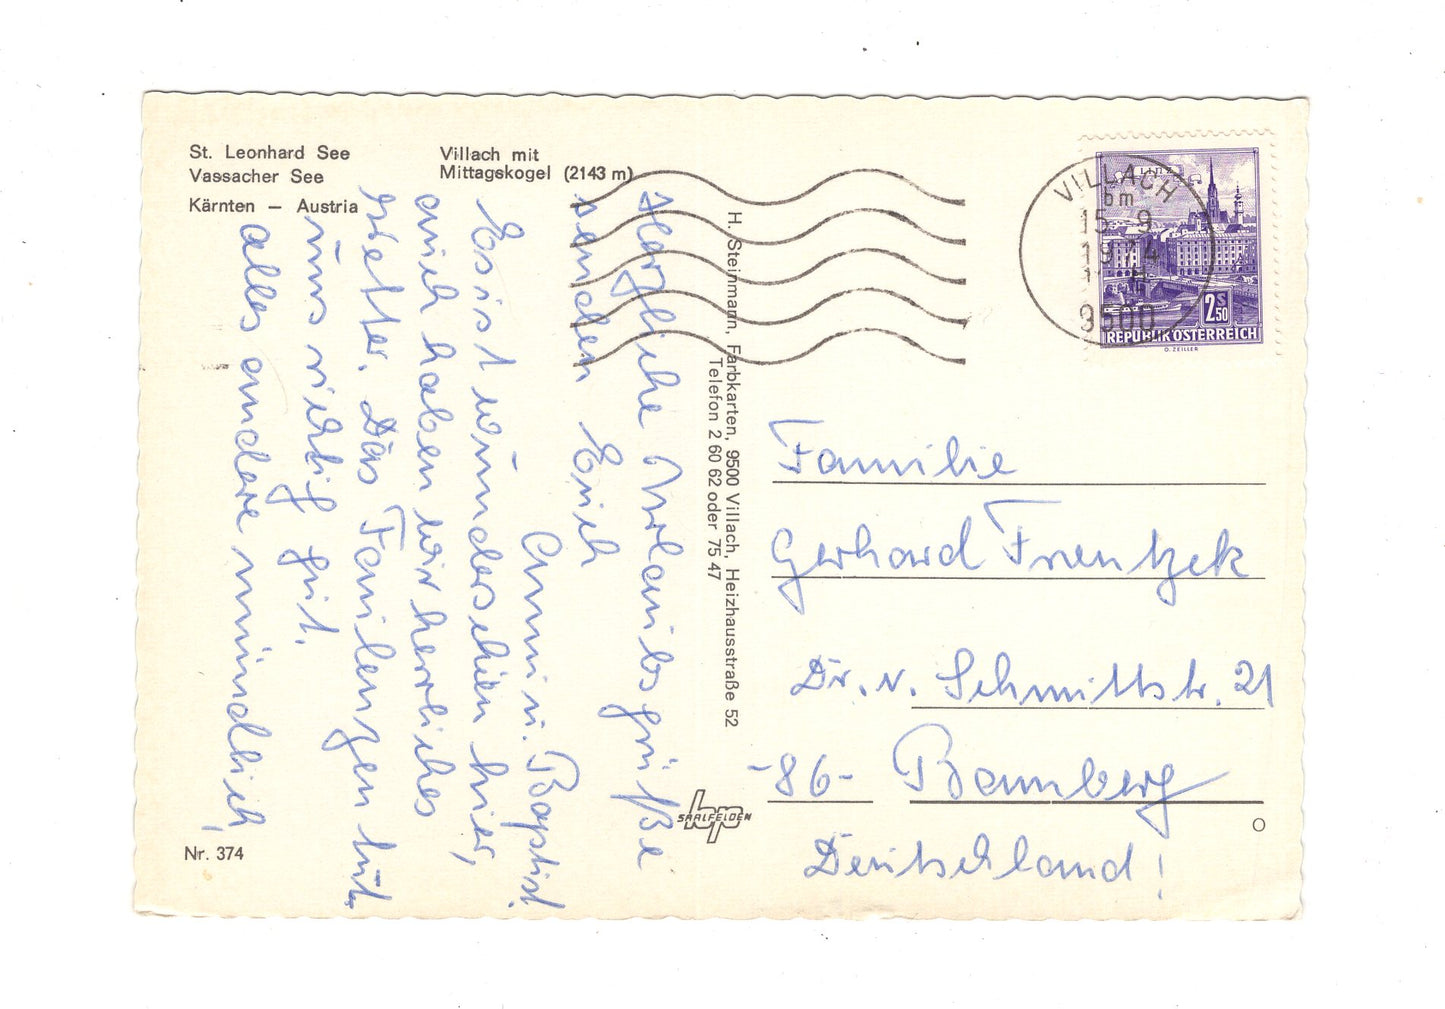 St. Leonhard See
Vassacher See
Kärnten – Austria
Villach mit
Mittagskogel (2143 m)
Herzliche Urlaubsgrüße
senden Erich
Anni u. Baptist
Es ist wunderschön hier,
auch haben wir herrliches
Wetter. Das Faulenzen tut
uns richtig gut.
alles andere mündlich,
Nr. 374
H. Steinmann, Farbkarten, 9500 Villach, Heizhausstraße 52
Telefon 2 60 62 oder 75 47
SAALFELDEN
VILLACH
bm
15 - 9
1974
9500
LINZ
2 S 50
REPUBLIK ÖSTERREICH
O. ZEILLER
Familie
Gerhard Frentzek
Dr. v. Schmittstr. 21
-86- Bamberg
Deutschland!